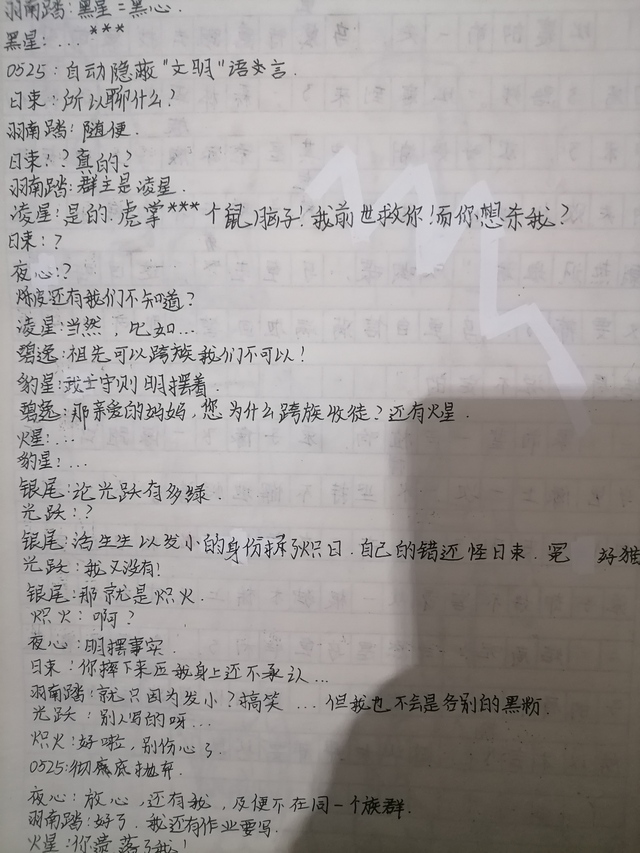 羽南踏:黑星=黑心.
黑星:...***
0525:自动隐蔽"文明"语发言.
日束:所以聊什么?
羽南踏:随便.
日束:?真的?
羽南踏:群主是凌星.
凌星:是的.虎掌***个鼠脑子!我前世救你!而你想杀我?
日束:?
夜心:?
还有我们不知道?
凌星:当然,比如...
碧逸:祖先可以跨族我们不可以!
豹星:武士守则明摆着.
碧逸:那亲爱的妈妈,您为什么跨族收徒?还有火星.
火星:...
豹星:...
银尾:论光跃有多绿.
光跃:?
银尾:活生生以发小的身份拆了炽日.自己的错还怪日束.冤 好猫
光跃:我又没有!
银尾:那就是炽火.
炽火:啊?
夜心:明摆事实.
日束:你摔下来压我身上还不承认...
羽南踏:就只因为发小?搞笑...但我也不会是各别的黑粉.
光跃:别人写的呀...
炽火:好啦,别伤心了.
0525:彻底抛弃.
夜心:放心,还有我,及便不在同一个族群.
羽南踏:好了.我还有作业要写.
火星:你遗落了我!